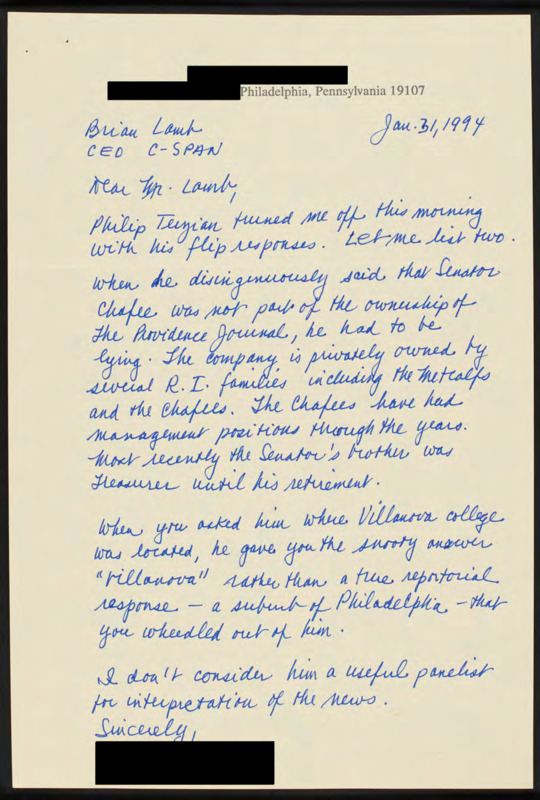 Philadelphia, Pennsylvania 19107
Brian Lamb
Jan. 31, 1994
CEO C-SPAN
Dear Mr. Lamb,
Philip Terzian turned me off this morning
with his flip responses. Let me list two.
When he disingenuously said that Senator
Chafee was not part of the ownership of
The Providence Journal, he had to be
lying. The company is privately owned by
several R.I. families including the Metcalfs
and the Chafees. The Chafees have had
management positions through the years.
Most recently the Senator's brother was
Treasurer until his retirement.
When you asked him where Villanova college
was located, he gave you the snooty answer
"Villanova" rather than a true reportorial
response – a suburb of Philadelphia – that
you wheedled out of him.
I don't consider him a useful panelist
for interpretation of the news.
Sincerely,